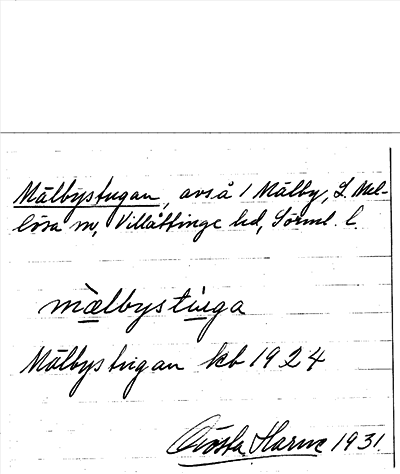 Mälbystugan, avs å 1 Mälby, L. Mel-
lösa sn, Villåttinge hd, Sörml. l.
mælbystùga
Mälbystugan kb 1924
Gösta Harne 1931